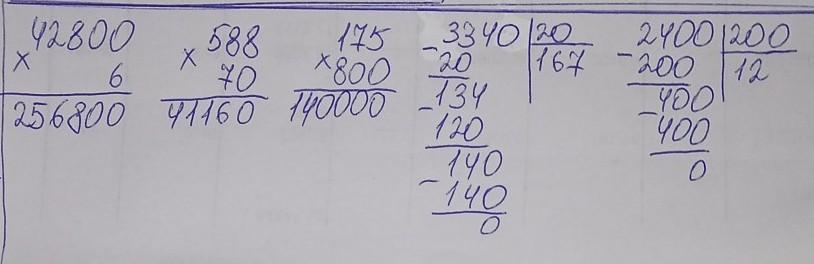 42800 × 588 × 175 - 3340 | 20 - 2400 | 200
× 6 70 800 20 167 200 12
256800 41160 140000 - 134 - 400
120 400
140 0
- 140
0